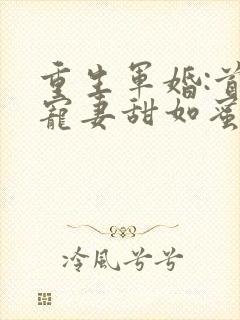 重生军婚:首
宠妻甜如蜜
冷風兮兮